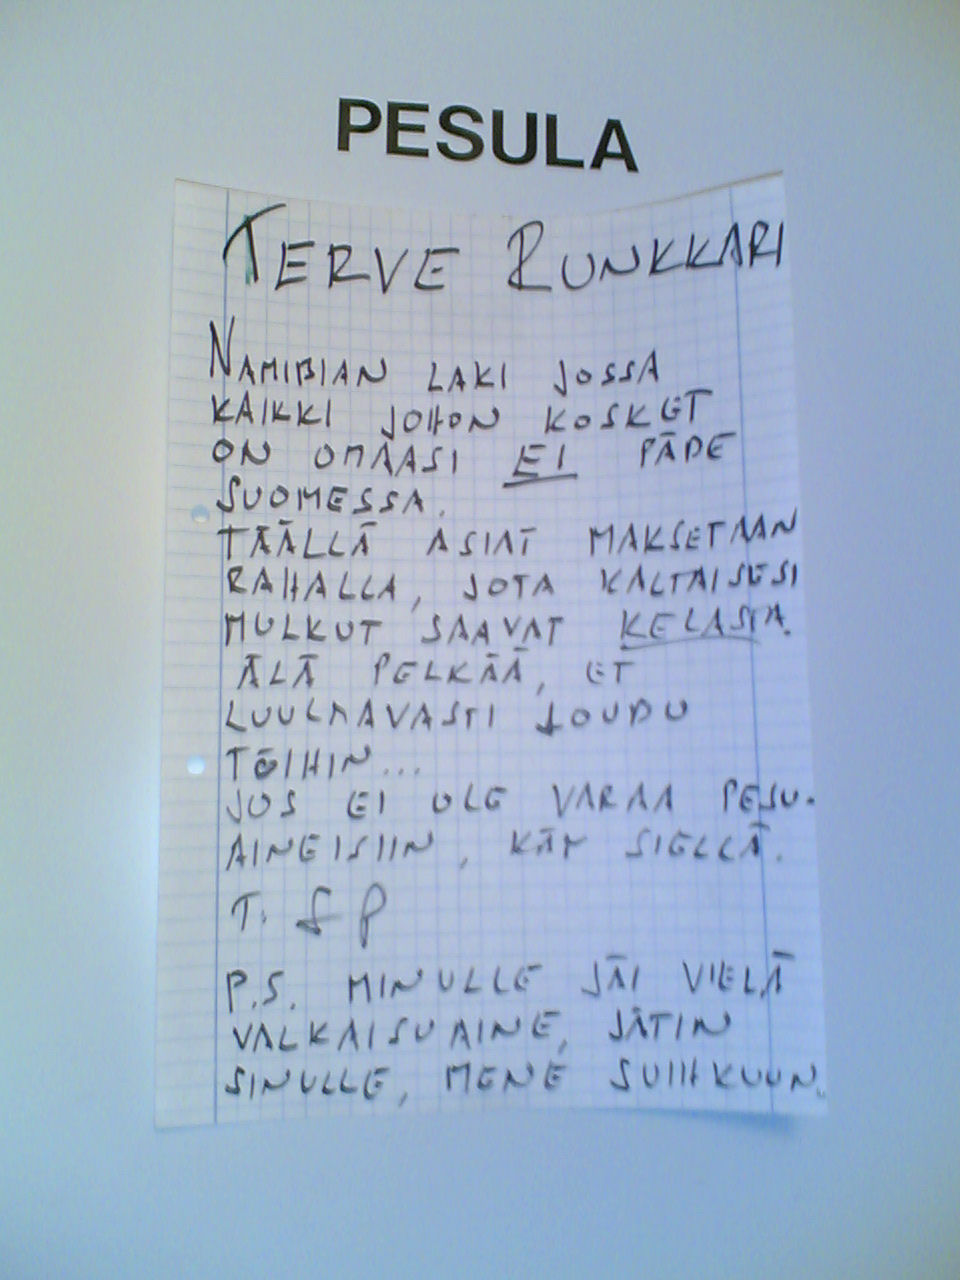 PESULA
TERVE RUNKKARI
NAMIBIAN LAKI JOSSA
KAIKKI JOHON KOSKET
ON OMAASI EI PÄDE
SUOMESSA.
TÄÄLLÄ ASIAT MAKSETAAN
RAHALLA, JOTA KALTAISESI
MULKUT SAAVAT KELASTA.
ÄLÄ PELKÄÄ, ET
LUULTAVASTI JOUDU
TÖIHIN...
JOS EI OLE VARAA PESU-
AINEISIIN, KÄY SIELLÄ.
T. J P
P.S. MINULLE JÄI VIELÄ
VALKAISUAINE, JÄTIN
SINULLE, MENE SUIHKUUN.